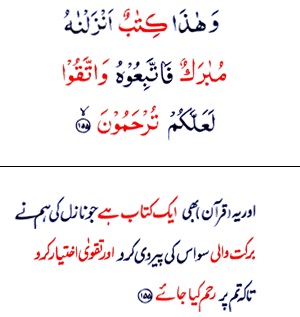 وَهٰذَا كِتٰبٌ اَنْزَلْنٰهُ
مُبٰرَكٌ فَاتَّبِعُوْهُ وَاتَّقُوْا
لَعَلَّكُمْ تُرْحَمُوْنَ ۙ﴿۱۵۵﴾
اور یہ (قرآن) بھی ایک کتاب ہے جو نازل کی ہم نے
برکت والی سو اس کی پیروی کرو اور تقویٰ اختیار کرو
تاکہ تم پر رحم کیا جائے ﴿۱۵۵﴾